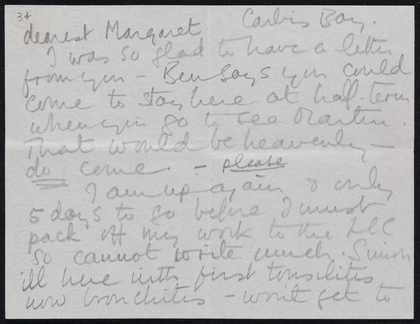 34
Carbis Bay.
dearest Margaret
I was so glad to have a letter
from you – Ben says you could
come to stay here at half term
when you go to see Martin.
That would be heavenly –
do come. – please
I am up again & only
5 days to go before I must
pack off my work to the LCC
so cannot write much. Simon
ill here with first tonsilitis
now bronchitis – won't get to